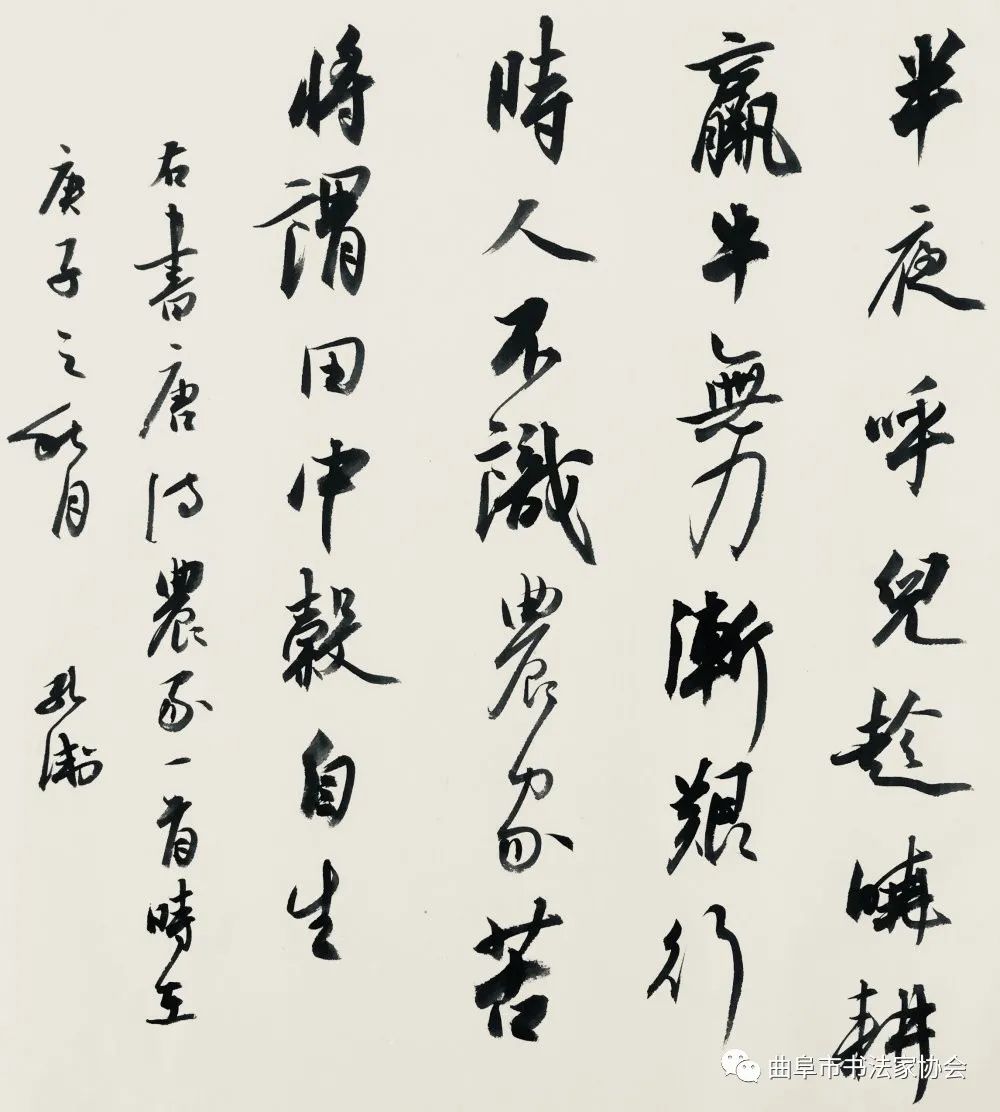 半夜呼兒趁曉耕
羸牛無力漸艱行
時人不識農家苦
將謂田中穀自生
右書唐詩農家一首時在
庚子之秋月 孔
曲阜市书法家协会